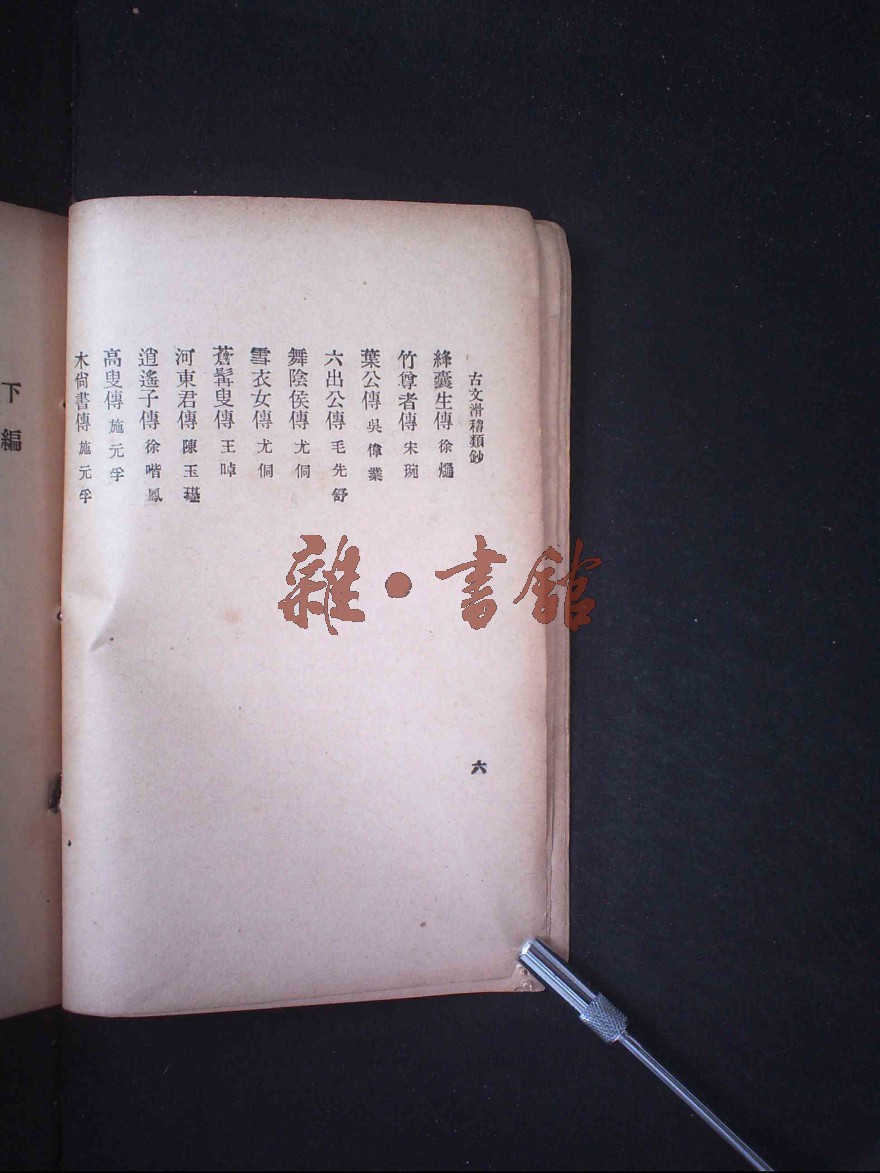 古文滑稽類鈔
六
絳囊生傳 徐㷆
竹尊者傳 宋琬
葉公傳 吳偉業
六出公傳 毛先舒
舞陰侯傳 尤侗
雪衣女傳 尤侗
蒼髯叟傳 王晫
河東君傳 陳玉璂
逍遙子傳 徐喈鳳
高叟傳 施元孚
木尙書傳 施元孚
下編
雜·書館